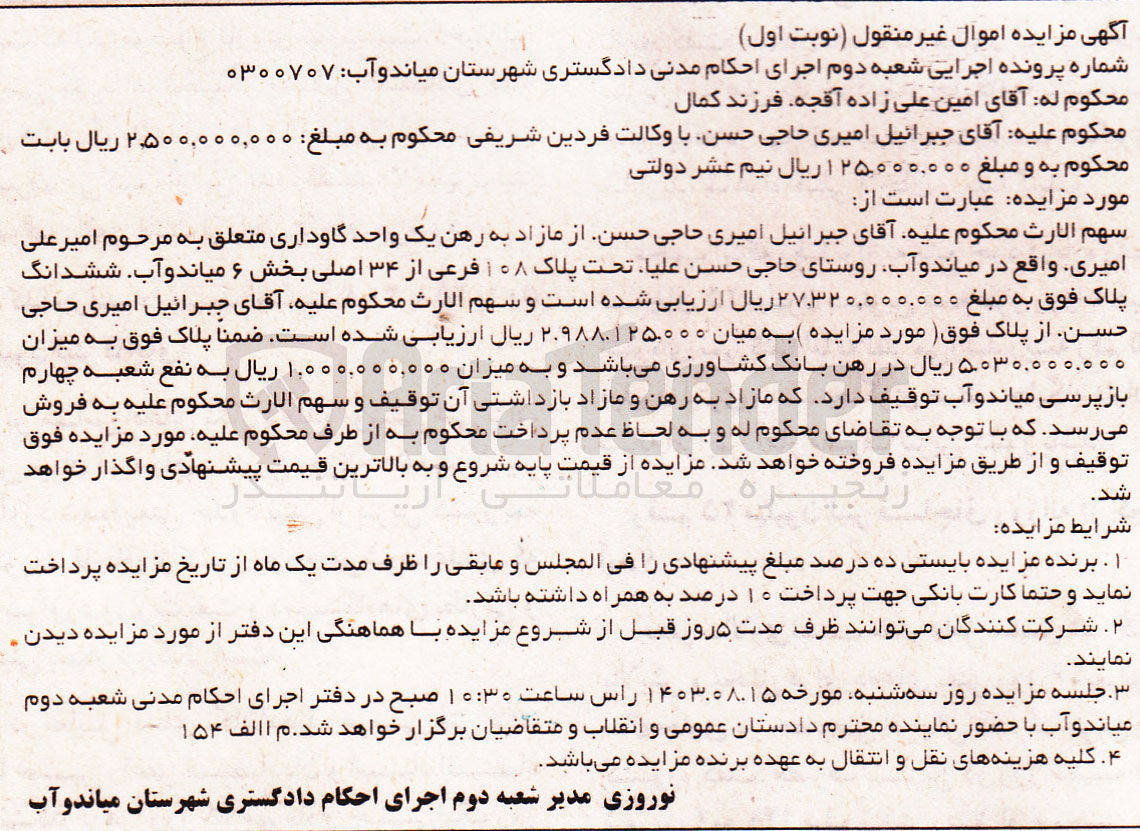 آگهی مزایده اموال غیرمنقول (نوبت اول)
شماره پرونده اجرایی شعبه دوم اجرای احکام مدنی دادگستری شهرستان میاندوآب: ۰۳۰۰۷۰۷
محکوم له: آقای امین علی زاده آقجه. فرزند کمال
محکوم علیه: آقای جبرائیل امیری حاجی حسن. با وکالت فردین شریفی محکوم به مبلغ: ۲,۵۰۰,۰۰۰,۰۰۰ ریال بابت
محکوم به و مبلغ ۱۲۵.۰۰۰.۰۰۰ ریال نیم عشر دولتی
مورد مزایده: عبارت است از:
سهم الارث محکوم علیه. آقای جبرائیل امیری حاجی حسن. از مازاد به رهن یک واحد گاوداری متعلق به مرحوم امیرعلی
امیری. واقع در میاندوآب، روستای حاجی حسن علیا. تحت پلاک ۱۰۸ فرعی از ۳۴ اصلی بخش ۶ میاندوآب. ششدانگ
پلاک فوق به مبلغ ۲۷.۳۲۰.۰۰۰.۰۰۰ریال ارزیابی شده است و سهم الارث محکوم علیه، آقای جبرائیل امیری حاجی
حسن. از پلاک فوق( مورد مزایده )به میان ۲.۹۸۸.۱۲۵.۰۰۰ ریال ارزیابی شده است. ضمناً پلاک فوق به میزان
۵.۰۳۰.۰۰۰.۰۰۰ ریال در رهن بانک کشاورزی می‌باشد و به میزان ۱.۰۰۰.۰۰۰.۰۰۰ ریال به نفع شعبه چهارم
بازپرسی میاندوآب توقیف دارد. که مازاد به رهن و مازاد بازداشتی آن توقیف و سهم الارث محکوم علیه به فروش
می‌رسد. که با توجه به تقاضای محکوم له و به لحاظ عدم پرداخت محکوم به از طرف محکوم علیه، مورد مزایده فوق
توقیف و از طریق مزایده فروخته خواهد شد. مزایده از قیمت پایه شروع و به بالاترین قیمت پیشنهادی واگذار خواهد
شد.
شرایط مزایده:
۱. برنده مزایده بایستی ده درصد مبلغ پیشنهادی را فی المجلس و مابقی را ظرف مدت یک ماه از تاریخ مزایده پرداخت
نماید و حتما کارت بانکی جهت پرداخت ۱۰ درصد به همراه داشته باشد.
۲. شرکت کنندگان می‌توانند ظرف مدت ۵روز قبل از شروع مزایده با هماهنگی این دفتر از مورد مزایده دیدن
نمایند.
۳.جلسه مزایده روز سه‌شنبه، مورخه ۱۴۰۳.۰۸.۱۵ راس ساعت ۱۰:۳۰ صبح در دفتر اجرای احکام مدنی شعبه دوم
میاندوآب با حضور نماینده محترم دادستان عمومی و انقلاب و متقاضیان برگزار خواهد شد.م االف ۱۵۴
۴. کلیه هزینه‌های نقل و انتقال به عهده برنده مزایده می‌باشد.
نوروزی مدیر شعبه دوم اجرای احکام دادگستری شهرستان میاندوآب
AriaTender
زنجیره معاملاتی آریاتندر